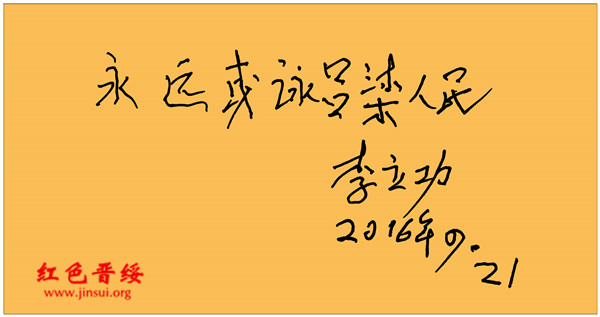 永远吕梁人民
李立功
2016年9.21
红色晋绥
www.jinsui.org